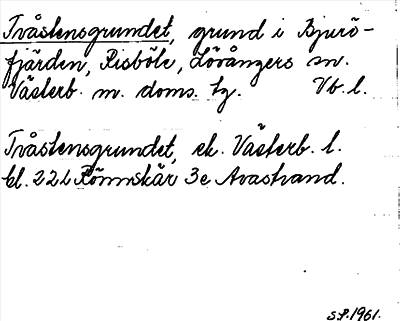 Tvåstensgrundet, grund i Bjurö-
fjärden, Risböle, Lövångers sn.
Västerb. m. doms. tg. Vb. l.
Tvåstensgrundet, ek. Västerb. l.
bl. 22L Rönnskär 3e Avastrand.
S.P. 1961.